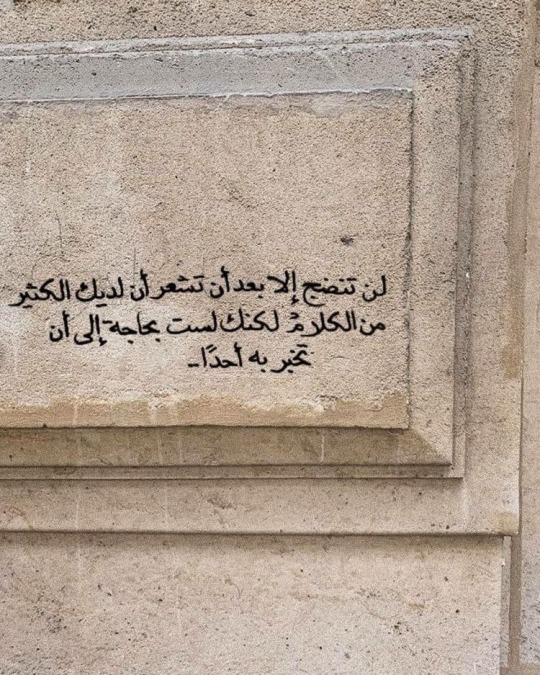 لن تنضج إلا بعد أن تشعر أن لديك الكثير
من الكلامْ لكنك لست بحاجة إلى أن
تخبر به أحدًا..